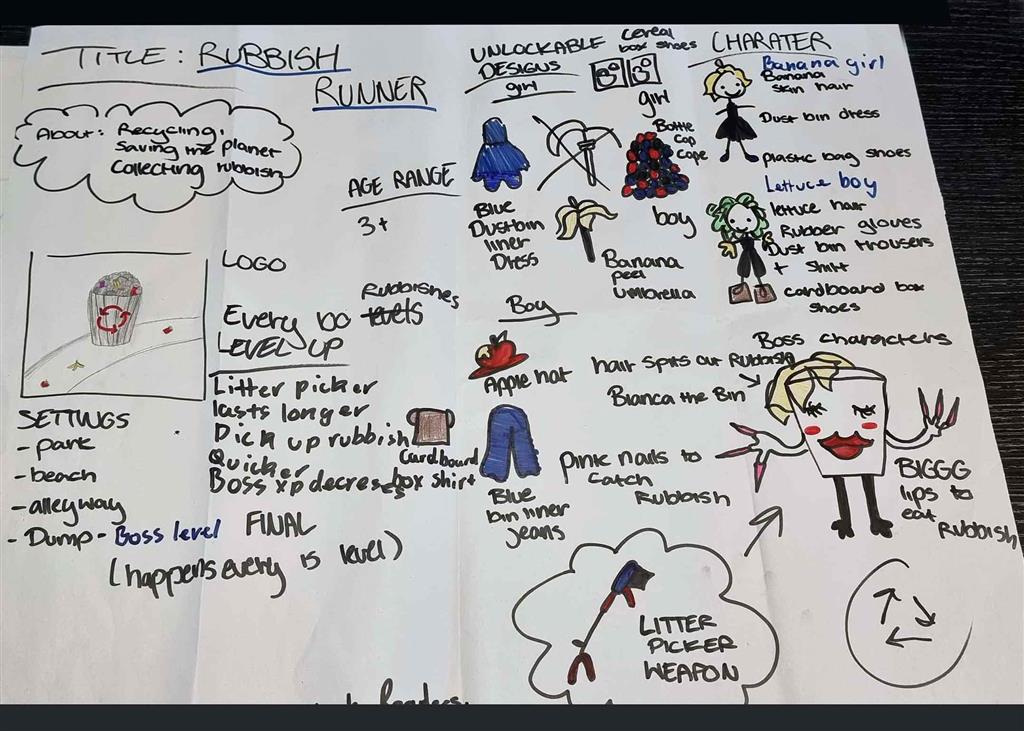 TITLE: RUBBISH
RUNNER
About: Recycling,
Saving the planet
Collecting rubbish
AGE RANGE
3+
LOGO
Every 100 levels
Rubbishes
LEVEL UP
Litter picker
lasts longer
Pick up rubbish
Quicker
Boss xp decreses
SETTINGS
- park
- beach
- alleyway
- Dump - Boss level FINAL
(happens every 15 level)
UNLOCKABLE
DESIGNS
girl
Cereal
box shoes
girl
Bottle
Cap
Cape
Blue
Dustbin
liner
Dress
boy
Banana
peel
umbrella
Boy
Apple hat
Cardboard
box shirt
Blue
bin liner
jeans
CHARATER
Banana girl
Banana
skin hair
Dust bin dress
plastic bag shoes
Lettuce boy
lettuce hair
Rubber gloves
Dust bin trousers
+ shirt
cardboard box
shoes
Boss characters
hair spits out Rubbish
Bianca the Bin
pink nails to
catch
Rubbish
BIGGG
lips to
eat
Rubbish
LITTER
PICKER
WEAPON